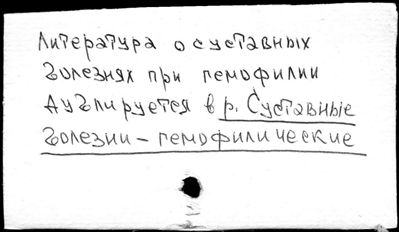 Литература о суставных
болезнях при гемофилии
дублируется в р. Суставные
болезни – гемофилические